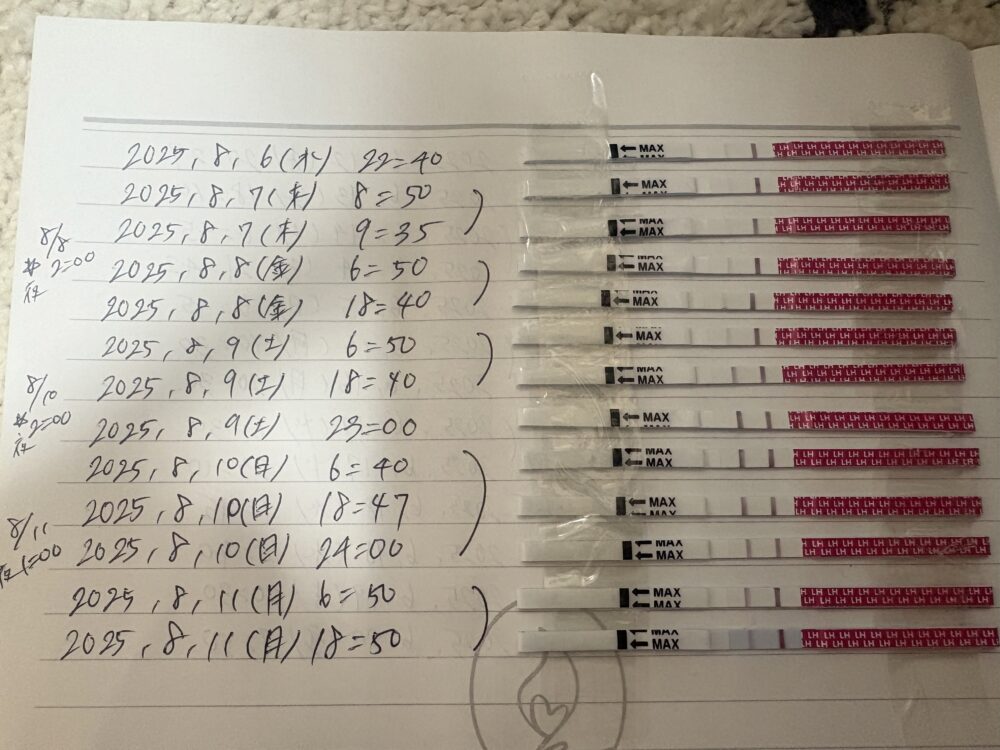 2025, 8, 6 (水) 22=40
← MAX
2025, 8, 7 (木) 8=50
← MAX
2025, 8, 7 (木) 9=35
← MAX
8/8
夜 2=00
2025, 8, 8 (金) 6=50
← MAX
2025, 8, 8 (金) 18=40
← MAX
2025, 8, 9 (土) 6=50
← MAX
8/10
夜 2=00
2025, 8, 9 (土) 18=40
← MAX
2025, 8, 9 (土) 23=00
← MAX
2025, 8, 10 (日) 6=40
← MAX
2025, 8, 10 (日) 18=47
← MAX
8/11
夜 1=00
2025, 8, 10 (日) 24=00
← MAX
2025, 8, 11 (月) 6=50
← MAX
2025, 8, 11 (月) 18=50
← MAX
LH LH LH LH LH LH LH LH LH LH